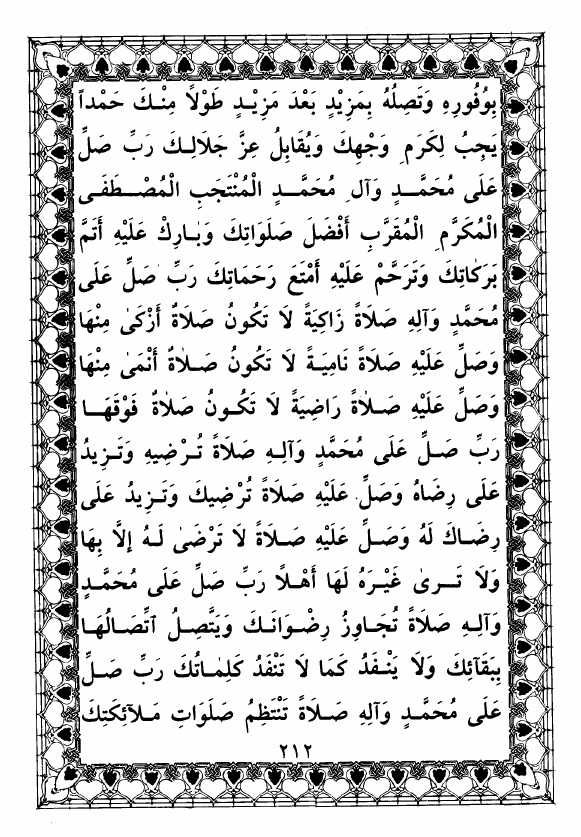 بِوُفُورِهِ وَتَصِلُهُ بِمَزِيْدٍ بَعْدَ مَزِيْـدٍ طَوْلاً مِنْـكَ حَمْداً
يَجِبُ لِكَرَمِ وَجْهِكَ وَيُقَابِلُ عِزَّ جَلَالِـكَ رَبِّ صَلِّ
عَلَى مُحَمَّـدٍ وَآلِ مُحَمَّـدٍ الْمُنْتَجَبِ الْمُصْـطَفَـى
الْمُكَرَّمِ الْمُقَرَّبِ أَفْضَلَ صَلَوَاتِكَ وَبَارِكْ عَلَيْهِ أَتَمَّ
بَرَكَاتِكَ وَتَرَحَّمْ عَلَيْهِ أَمْتَعَ رَحَمَاتِكَ رَبِّ صَلِّ عَلَى
مُحَمَّدٍ وَآلِهِ صَلَاةً زَاكِيَةً لَا تَكُونُ صَلَاةٌ أَزْكَىٰ مِنْهَا
وَصَلِّ عَلَيْهِ صَلَاةً نَامِيَـةً لَا تَكُونُ صَـلَاةٌ أَنْمَىٰ مِنْهَا
وَصَلِّ عَلَيْهِ صَـلَاةً رَاضِيَةً لَا تَكُـونُ صَلَاةٌ فَوْقَهَـا
رَبِّ صَـلِّ عَلَى مُحَمَّدٍ وَآلِـهِ صَلَاةً تُـرْضِيهِ وَتَـزِيدُ
عَلَى رِضَاهُ وَصَلِّ عَلَيْهِ صَلَاةً تُرْضِيكَ وَتَـزِيدُ عَلَى
رِضَـاكَ لَهُ وَصَـلِّ عَلَيْهِ صَـلَاةً لَا تَرْضَىٰ لَـهُ إِلَّا بِهَا
وَلَا تَـرىٰ غَيْـرَهُ لَهَا أَهْـلاً رَبِّ صَلِّ عَلَى مُحَمَّـدٍ
وَآلِـهِ صَلَاةً تُجَـاوِزُ رِضْـوَانَـكَ وَيَتَّصِلُ ٱتِّصَـالُهَـا
بِبَقَآئِكَ وَلَا يَنْـفَدُ كَمَا لَا تَنْفَدُ كَلِمَاتُكَ رَبِّ صَـلِّ
عَلَى مُحَمَّـدٍ وَآلِهِ صَـلَاةً تَنْتَظِمُ صَلَوَاتِ مَـلَآئِكَتِكَ
٢١٢